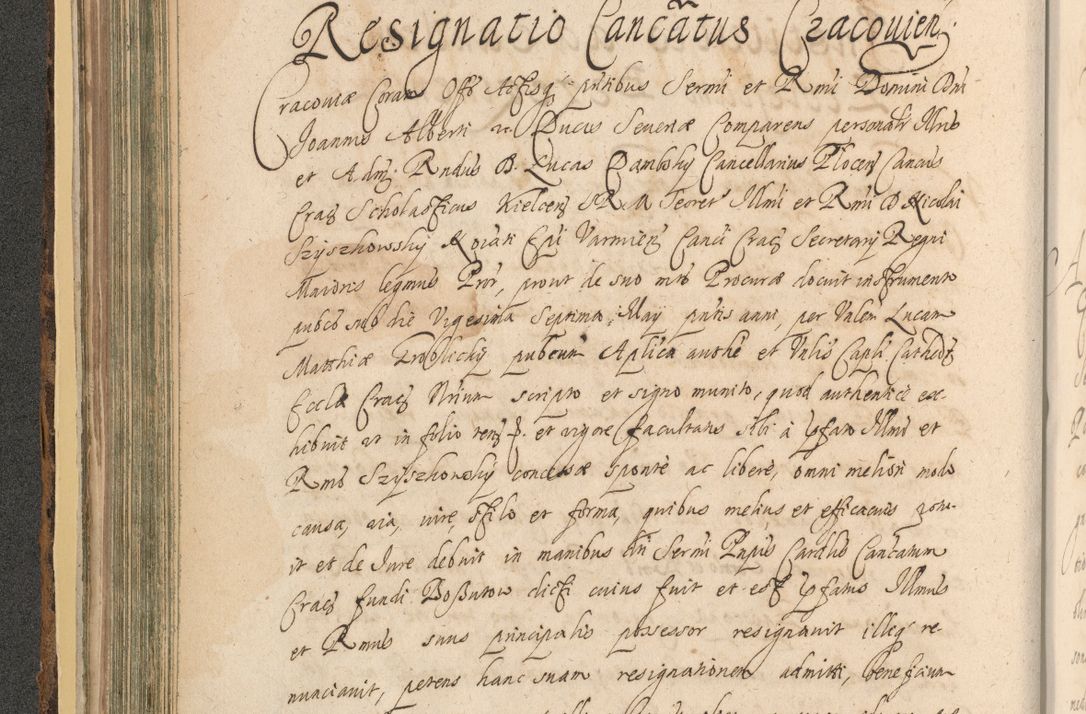 Resignatio Cancatus Cracouien.
Cracoviæ Coram Offo Actisq pntibus Sermi et Rmi Domini Dni
Joannis Alberti rc Ducis Severiæ Comparens personalr Illris
et Adm Rndus D. Lucas Dambsky Cancellarius Plocen Cancus
Crac Scholasticus Kielcen SRM Secret Illmi et Rmi D Nicolai
Szyszkowsky Epi Varmien Canci Crac Secretarij Regni
Maioris legmus Pror, prout de suo mto Procuræ docuit instrumento
pubco sub die Vigesima Septima May pntis anni, per Valen Lucam
Matthiæ Aplica authe et Vnlis Capli Cathedr
Eccle Crac scripto et signo munito, quod authentice ex-
hibuit vt in folio et vigore facultatis sibi à pfato Illmi et
Rmo Szyszkowsky concessæ sponte ac libere, omni meliori modo
causa, via, iure, stilo et forma, quibus melius et efficacius potu-
it et de Iure debuit in manibus Sermi Pnpis Cardlis Cancatum
Crac fundi dicti cuius fuit et est pfatus Illmus
et Rmus suus principalis possessor resignauit illeq re
nunciauit, petens hanc suam resignationem admitti, beneficium